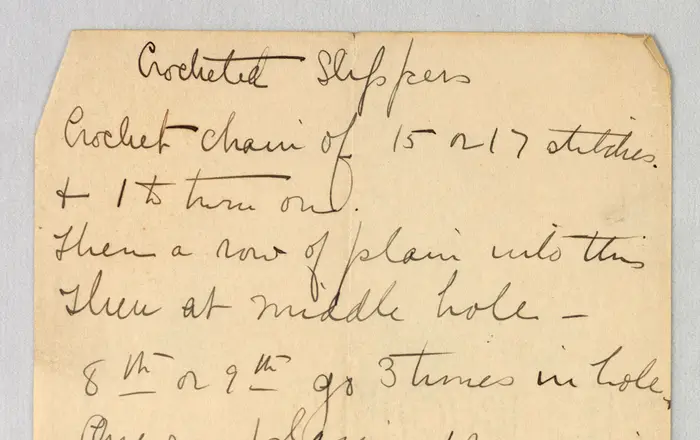 Crocheted Slippers
Crochet chain of 15 or 17 stitches.
+ 1 to turn on.
Then a row of plain into this
Then at middle hole –
8th or 9th go 3 times in hole.
plain